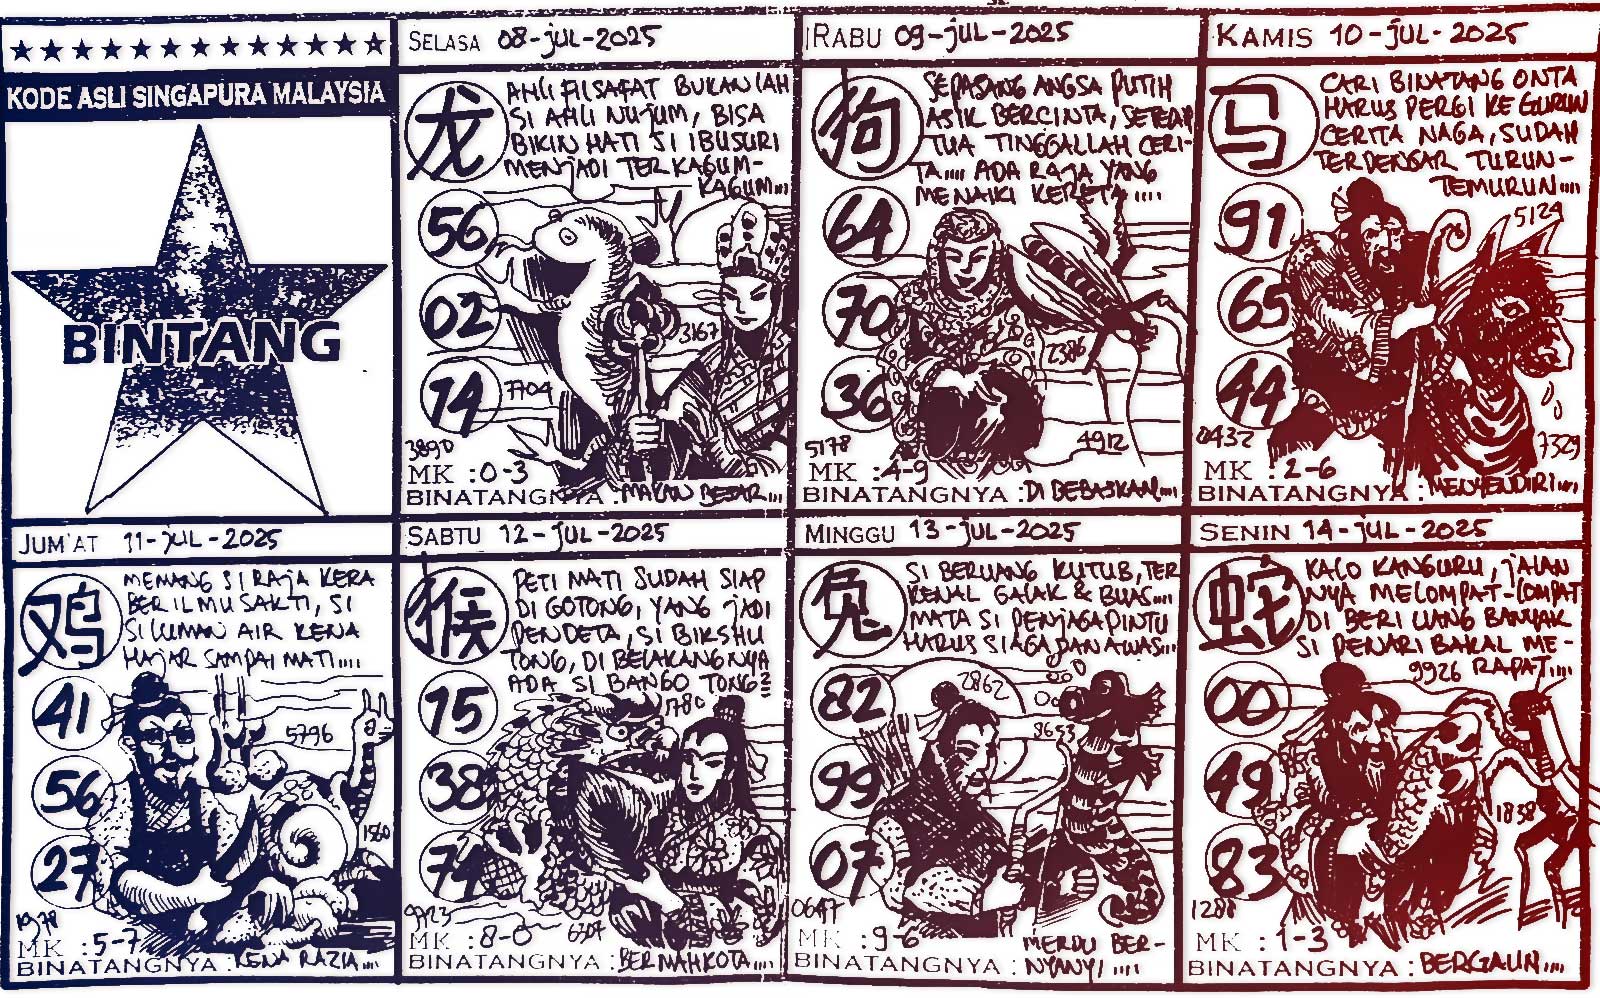 KODE ASLI SINGAPURA MALAYSIA
BINTANG
SELASA 08-JUL-2025
龙
AHLI FILSAFAT BUKANLAH
SI AHLI NUJUM, BISA
BIKIN HATI SI IBUSURI
MENJADI TERKAGUM-
KAGUM....
56
02
14
3167
7704
3890
MK : 0-3
BINATANGNYA : MAKAN BESAR....
RABU 09-JUL-2025
狗
SEPASANG ANGSA PUTIH
ASIK BERCINTA, SETELAH
TUA TINGGALLAH CERI-
TA.... ADA RAJA YANG
MENAIKI KERETA....
64
70
36
2386
5178
4912
MK : 4-9
BINATANGNYA : DI BEBASKAN....
KAMIS 10-JUL-2025
马
CARI BINATANG ONTA
HARUS PERGI KE GURUN
CERITA NAGA, SUDAH
TERDENGAR TURUN-
TEMURUN....
91
65
44
5129
0432
7329
MK : 2-6
BINATANGNYA : MENYENDIRI....
JUM'AT 11-JUL-2025
鸡
MENANG SI RAJA KERA
BERILMU SAKTI, SI
SILUMAN AIR KENA
HAJAR SAMPAI MATI....
41
56
27
5796
1560
1978
MK : 5-7
BINATANGNYA : KENA RAZIA....
SABTU 12-JUL-2025
猴
PETI MATI SUDAH SIAP
DI GOTONG, YANG JADI
PENDETA, SI BIKSHU
TONG, DI BELAKANGNYA
ADA SI BANGO TONG2
15
38
74
5780
9723
6304
MK : 8-0
BINATANGNYA : BERMAHKOTA....
MINGGU 13-JUL-2025
兔
SI BERUANG KUTUB, TER
KENAL GALAK & BUAS....
MATA SI PENJAGA PINTU
HARUS SIAGA DAN AWAS....
82
99
07
2862
8653
0647
MK : 9-6
BINATANGNYA : MERDU BER-
NYANYI....
SENIN 14-JUL-2025
蛇
KALO KANGURU, JALAN
NYA MELOMPAT-LOMPAT
DI BERI UANG BANYAK
SI PENARI BAKAL ME-
RAPAT....
00
49
83
9926
1838
1288
MK : 1-3
BINATANGNYA : BERGAUN....